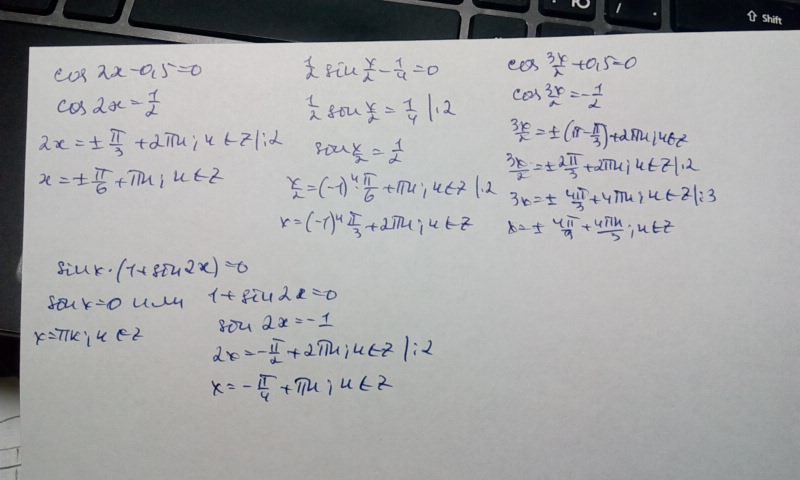 ⇧ Shift
cos 2x-0,5=0
cos 2x=1/2
2x=±π/3+2πn; n∈Z |:2
x=±π/6+πn; n∈Z
1/2 sin x/2-1/4=0
1/2 sin x/2=1/4 |·2
sin x/2=1/2
x/2=(-1)ⁿ·π/6+πn; n∈Z |·2
x=(-1)ⁿ π/3+2πn; n∈Z
cos 3x/2+0,5=0
cos 3x/2=-1/2
3x/2=±(π-π/3)+2πn; n∈Z
3x/2=±2π/3+2πn; n∈Z |·2
3x=±4π/3+4πn; n∈Z |:3
x=±4π/9+4πn/3; n∈Z
sin x·(1+sin 2x)=0
sin x=0 или 1+sin 2x=0
x=πn; n∈Z
sin 2x=-1
2x=-π/2+2πn; n∈Z |:2
x=-π/4+πn; n∈Z